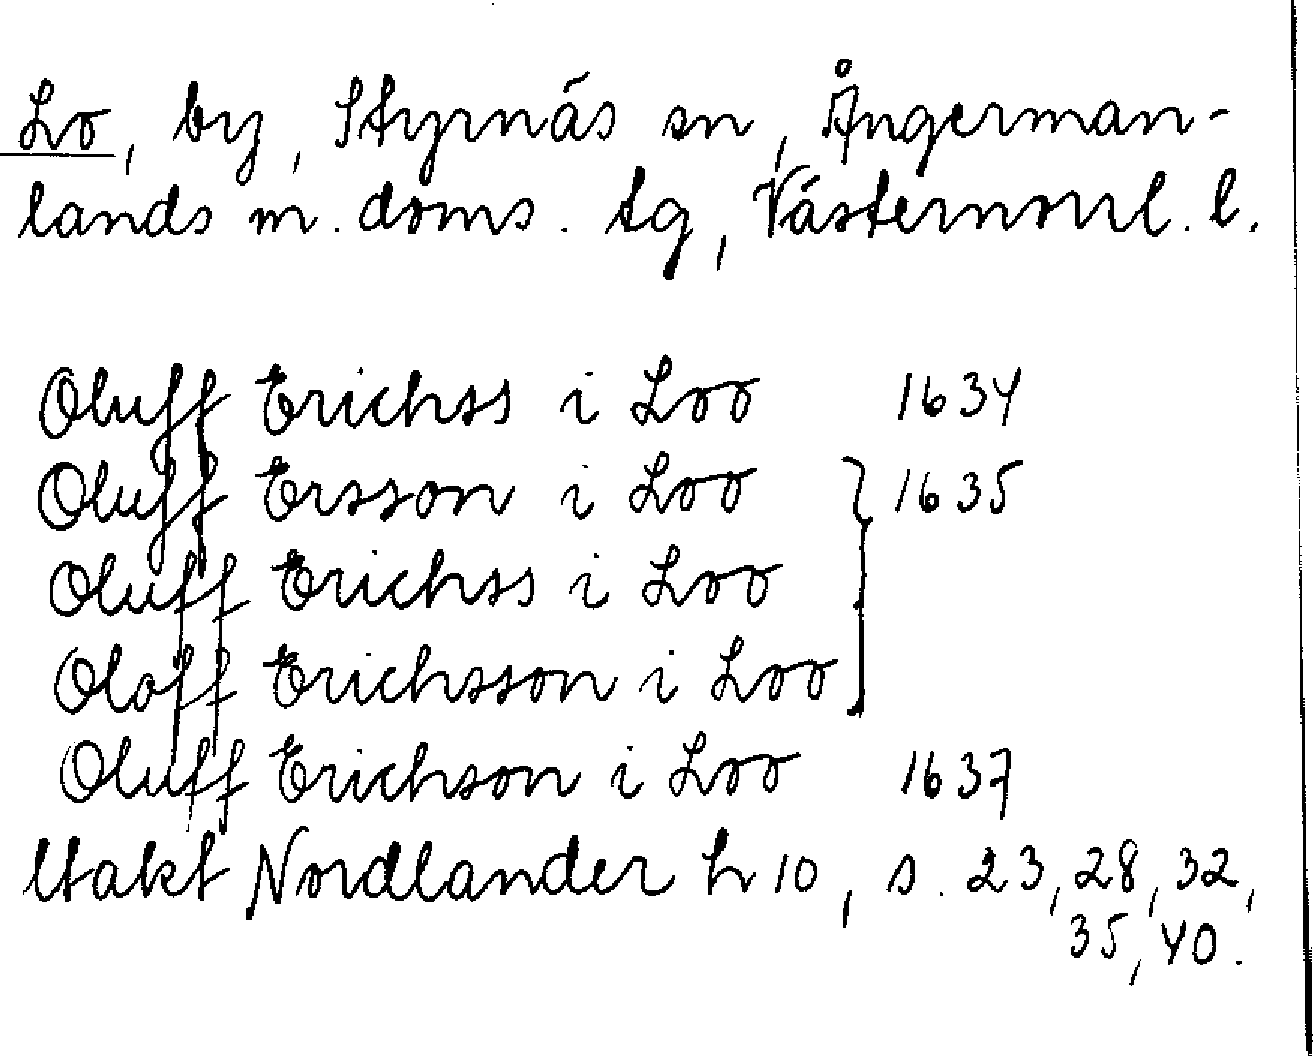 Lo, by, Styrnäs sn, Ångerman-
lands m. doms. tg, Västernorrl. l.
Oluff Erichss i Loo 1634
Oluff Ersson i Loo } 1635
Oluff Erichss i Loo
Oloff Erichsson i Loo
Oluff Erichson i Loo 1637
Utakt Nordlander h 10, s. 23, 28, 32,
35, 40.